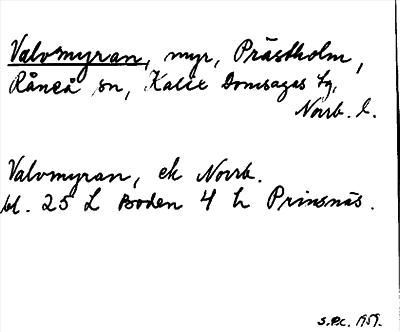 Valvmyran, myr, Prästholm,
Råneå sn, Kalix Domsagas tg,
Norrb. l.
Valvmyran, ek Norrb.
bl. 25 L Boden 4 h Prinsnäs.
S.P.C. 1959.